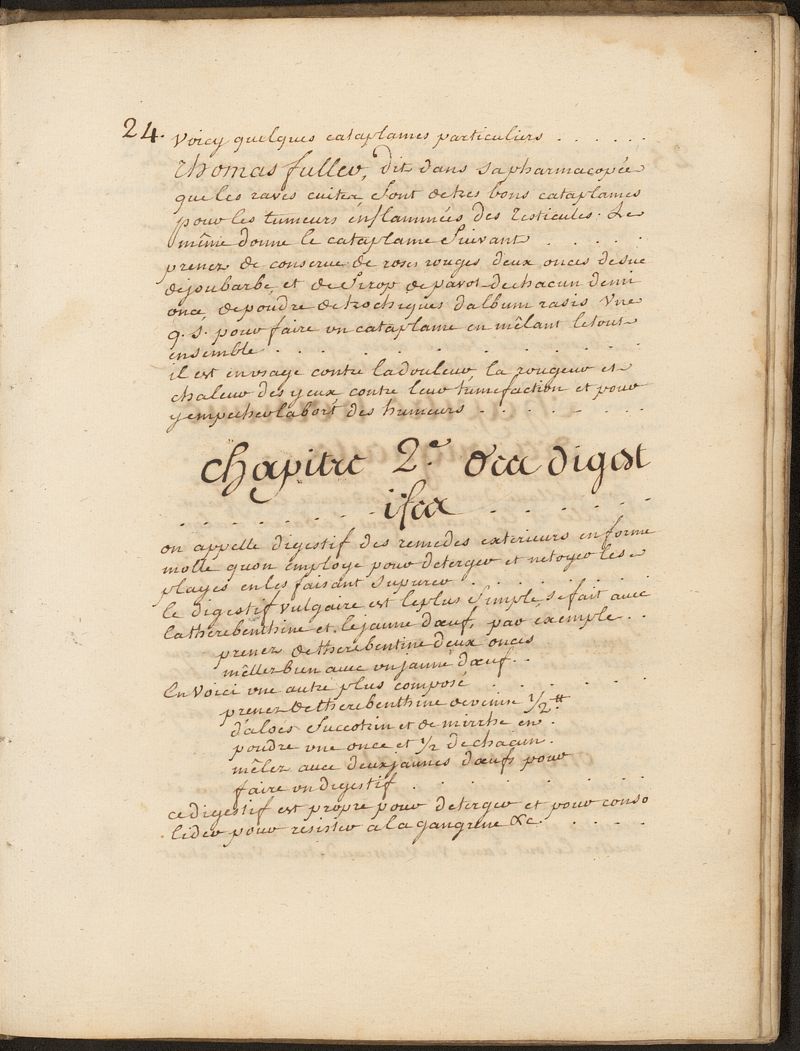 24. Voicy quelques cataplames particuliers . . . . . .
Thomas fuller, dit dans sapharmacopée
que les raves cuites sont de tres bons cataplames
pour les tumeurs enflammées des testicules. Le
même donne le cataplame Suivant . . . . .
prenez de conserve de roses rouges deux onces desuc
dejoubarbe, et de Sirop de pavot dechacun demi
once, depoudre de trochiques d'album rasis Une
q. s. pour faire un cataplame en mêlant letout
ensemble . . . . . . . . .
il est en usage contre la douleur la rougeur et
chaleur des yeux contre leur tumefaction et pour
y empecher labort des humeurs . . . . . . .
Chapitre 2.e Des digest
ifes
. . . . . . . . . . . .
on appelle digestif des remedes exterieurs en forme
molle quon employe pour deterger et netoyer les
playes en les faisant Supurer . . . . . . .
le digestif vulgaire est leplus Simple, se fait avec
la therebenthine et. lejaune dœuf, par exemple . .
prenez de therebentine deux onces
mêllez bien avec un jaune dœuf . .
En Voici une autre plus composé . . . . .
prenez de therebenthine de venise 1/2 ℔
d'aloés Succotrin et de mirrhe en .
poudre une once et 1/2 de chaqun .
mêlez avec deux jaunes dœufs pour
faire un digestif . . . . . . .
ce digestif est propre pour deterger et pour conso
lider pour resister a la gangrene &c. . . . .